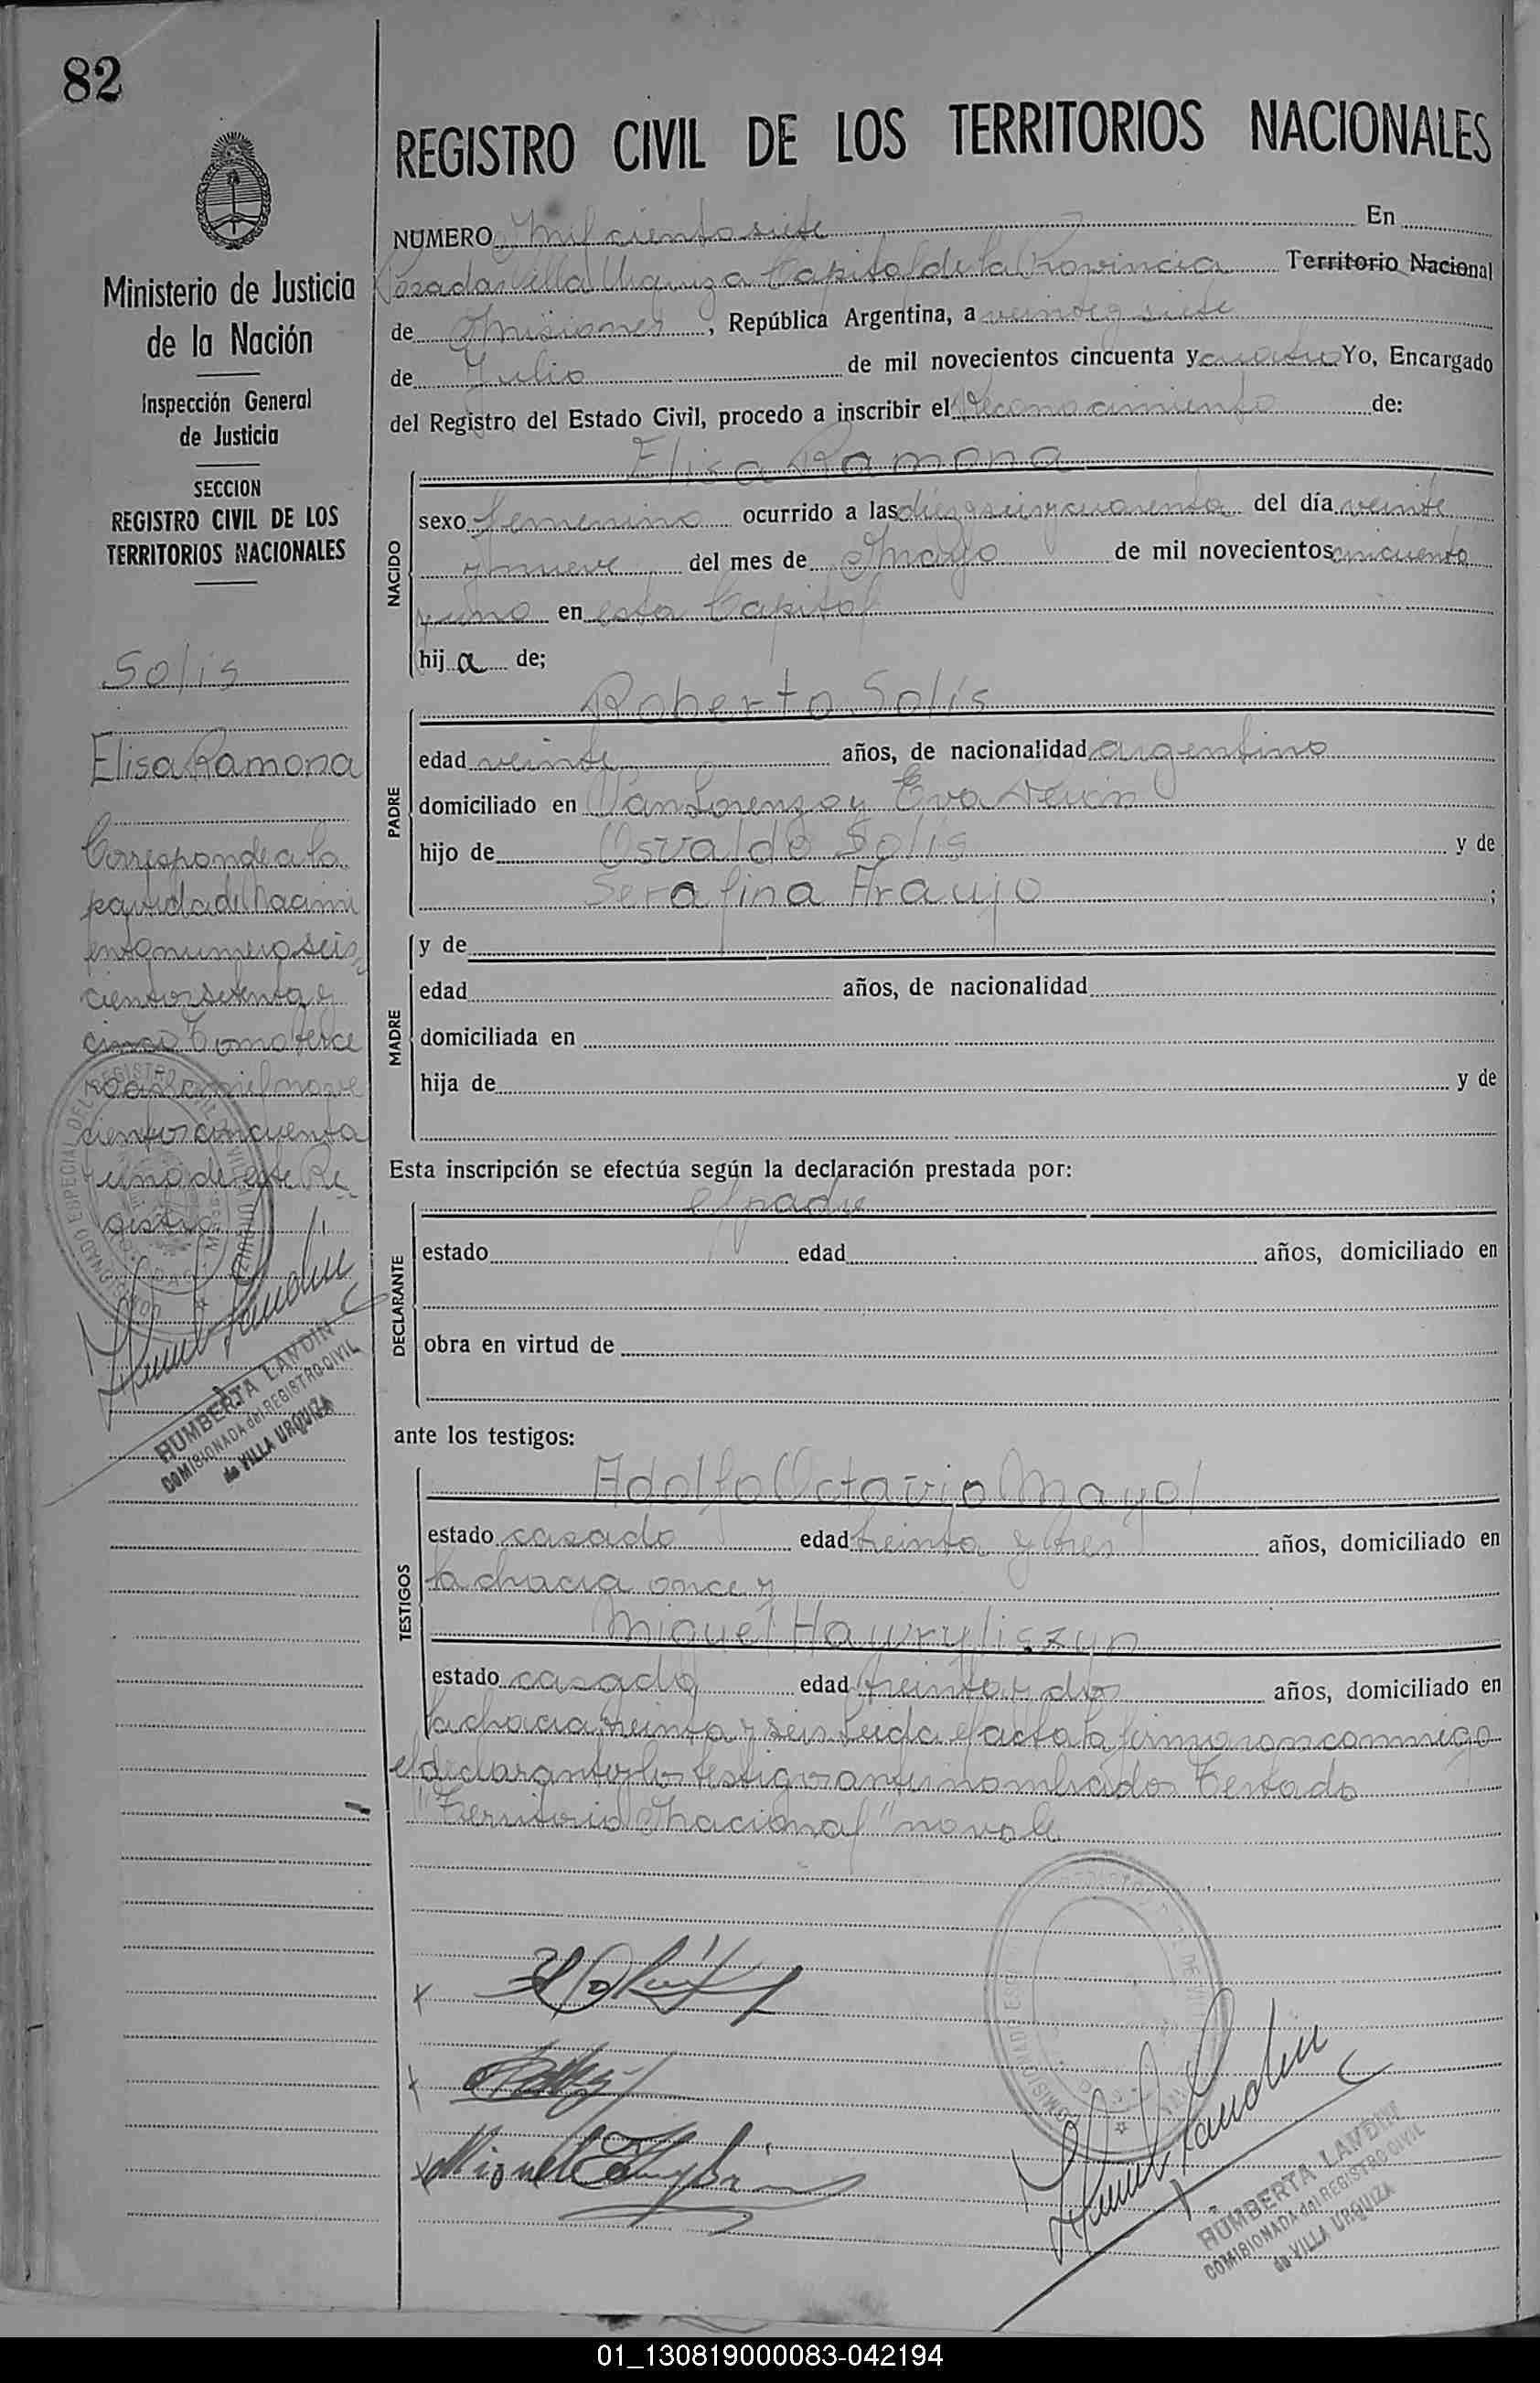 82
Ministerio de Justicia
de la Nación
Inspección General
de Justicia
SECCION
REGISTRO CIVIL DE LOS
TERRITORIOS NACIONALES
Solis
Elisa Ramona
Corresponde a la
partida de Nacimi
ento numero seis
cientos setenta y
cinco Tomo terce
ro año mil nove
cientos cincuenta
y uno de este Re
gistro
HUMBERTA LANDIN
COMISIONADA del REGISTRO CIVIL
de VILLA URQUIZA
REGISTRO CIVIL DE LOS TERRITORIOS NACIONALES
NUMERO Mil ciento siete En
Posadas Villa Urquiza Capital de la Provincia Territorio Nacional
de Misiones, República Argentina, a veinte y siete
de Julio de mil novecientos cincuenta y cuatro Yo, Encargado
del Registro del Estado Civil, procedo a inscribir el Reconocimiento de:
NACIDO
Elisa Ramona
sexo femenino ocurrido a las diez y seis y cuarenta del día veinte
y nueve del mes de Mayo de mil novecientos cincuenta
y uno en esta Capital
hij a de;
PADRE
Roberto Solis
edad veinte años, de nacionalidad argentino
domiciliado en San Lorenzo y Eva Perón
hijo de Osvaldo Solis y de
Serafina Araujo ;
MADRE
y de
edad años, de nacionalidad
domiciliada en
hija de y de
Esta inscripción se efectúa según la declaración prestada por:
DECLARANTE
el padre
estado edad años, domiciliado en
obra en virtud de
ante los testigos:
TESTIGOS
Adolfo Octavio Mayol
estado casado edad treinta y tres años, domiciliado en
la chacra once y
Miguel Hawryliszyn
estado casado edad treinta y dos años, domiciliado en
la chacra treinta y seis Leida el acta la firmaron conmigo
el declarante y los testigos antes nombrados Testado
"Territorio Nacional" no vale
HUMBERTA LANDIN
COMISIONADA del REGISTRO CIVIL
de VILLA URQUIZA
01_130819000083-042194